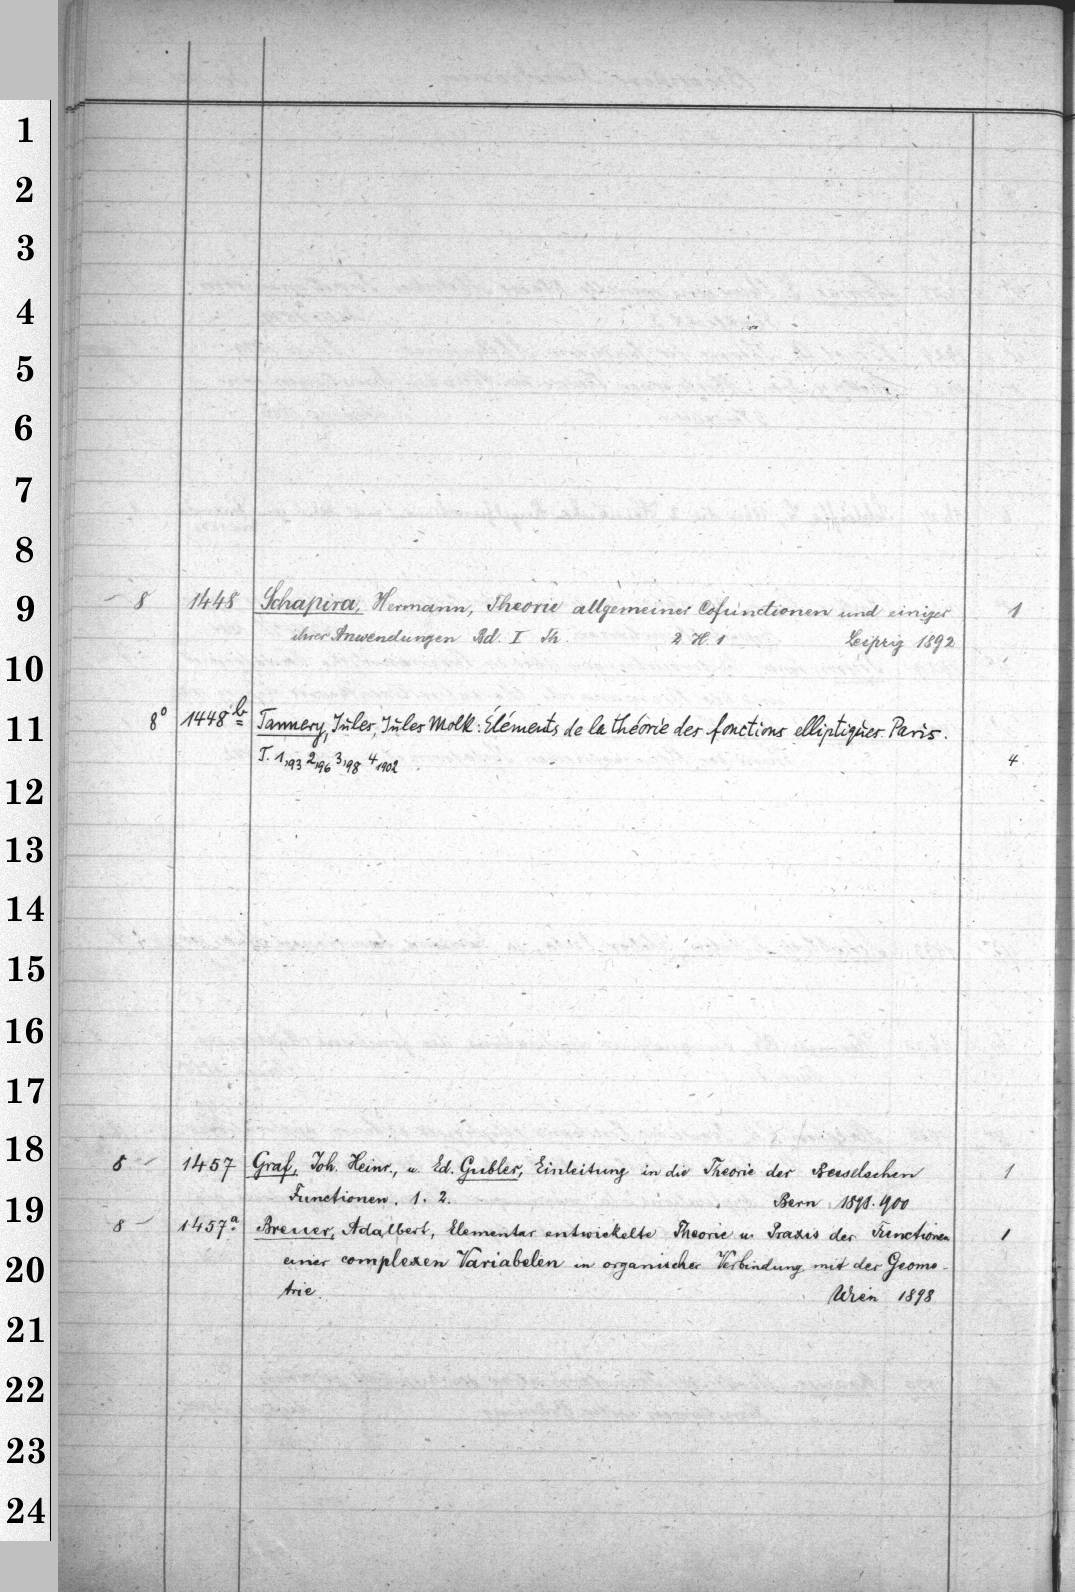 1
2
3
4
5
6
7
8
9
10
11
12
13
14
15
16
17
18
19
20
21
22
23
24
8 1448 Schapira, Hermann, Theorie allgemeiner Cofunctionen und einiger 1
ihrer Anwendungen Bd. I Th. 2 H. 1 Leipzig 1892
8° 1448 b Tannery, Jules, Jules Molk: Éléments de la théorie des fonctions elliptiques. Paris.
T. 1,93 2,96 3,98 4 1902 4
8 — 1457 Graf, Joh. Heinr., u. Ed. Gubler, Einleitung in die Theorie der Besselschen 1
Functionen. 1. 2. Bern 1898.900
8 — 1457a. Breuer, Adalbert, Elementar entwickelte Theorie u. Praxis der Functionen 1
einer complexen Variabelen in organischer Verbindung mit der Geome-
trie. Wien 1898